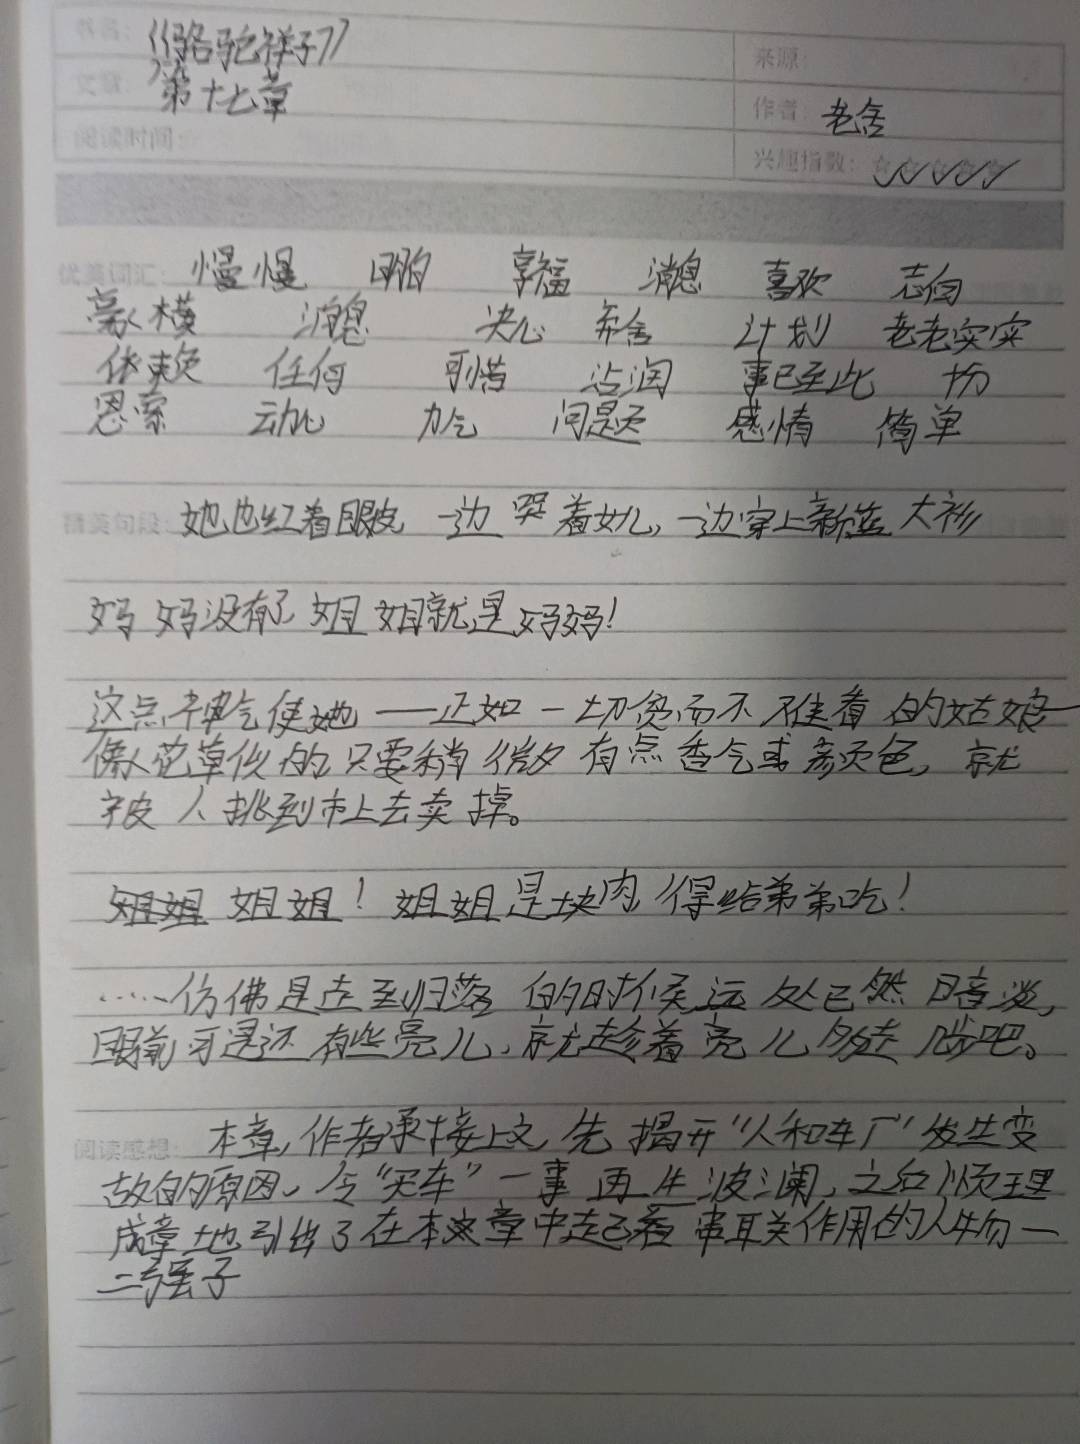 书名：《骆驼祥子》
来源：
文章：第十七章
作者：老舍
阅读时间：
兴趣指数：☆☆☆☆☆
优美词汇：慢慢 明白 享福 消息 喜欢 志向
豪横 消息 决心 希舍 计划 老老实实
依赖 任何 可惜 沾润 事已至此
思索 动心 力气 问题 感情 简单
精美句段：她也红着眼皮 一边哭着女儿，一边穿上新蓝大衫
妈妈没有了 姐姐就是妈妈！
这点脾气使她——正如一切贫而不难看的姑娘——
像花草似的只要稍微有点香气或颜色，就
被人挑到市上去卖掉。
姐姐 姐姐！姐姐是块肉 得给弟弟吃！
……仿佛是走到归落的时候 远处已然暗淡，
眼前可是还有些亮儿，就趁着亮儿多走几步吧。
阅读感想：本章，作者承接上文，先揭开“人和车厂”发生变
故的原因。令“买车”一事再生波澜，之后顺理
成章地引出了在本章中起着串联关作用的人物一
二强子